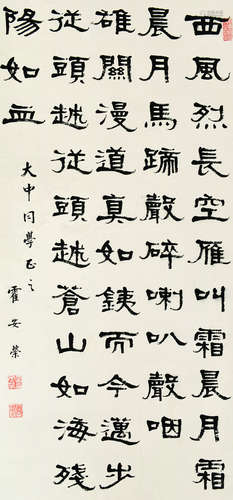 西風烈長空雁叫霜晨月霜
晨月馬蹄聲碎喇叭聲咽
雄關漫道真如銕而今邁步
從頭越從頭越蒼山如海殘
陽如血
大中同學正之
霍安榮